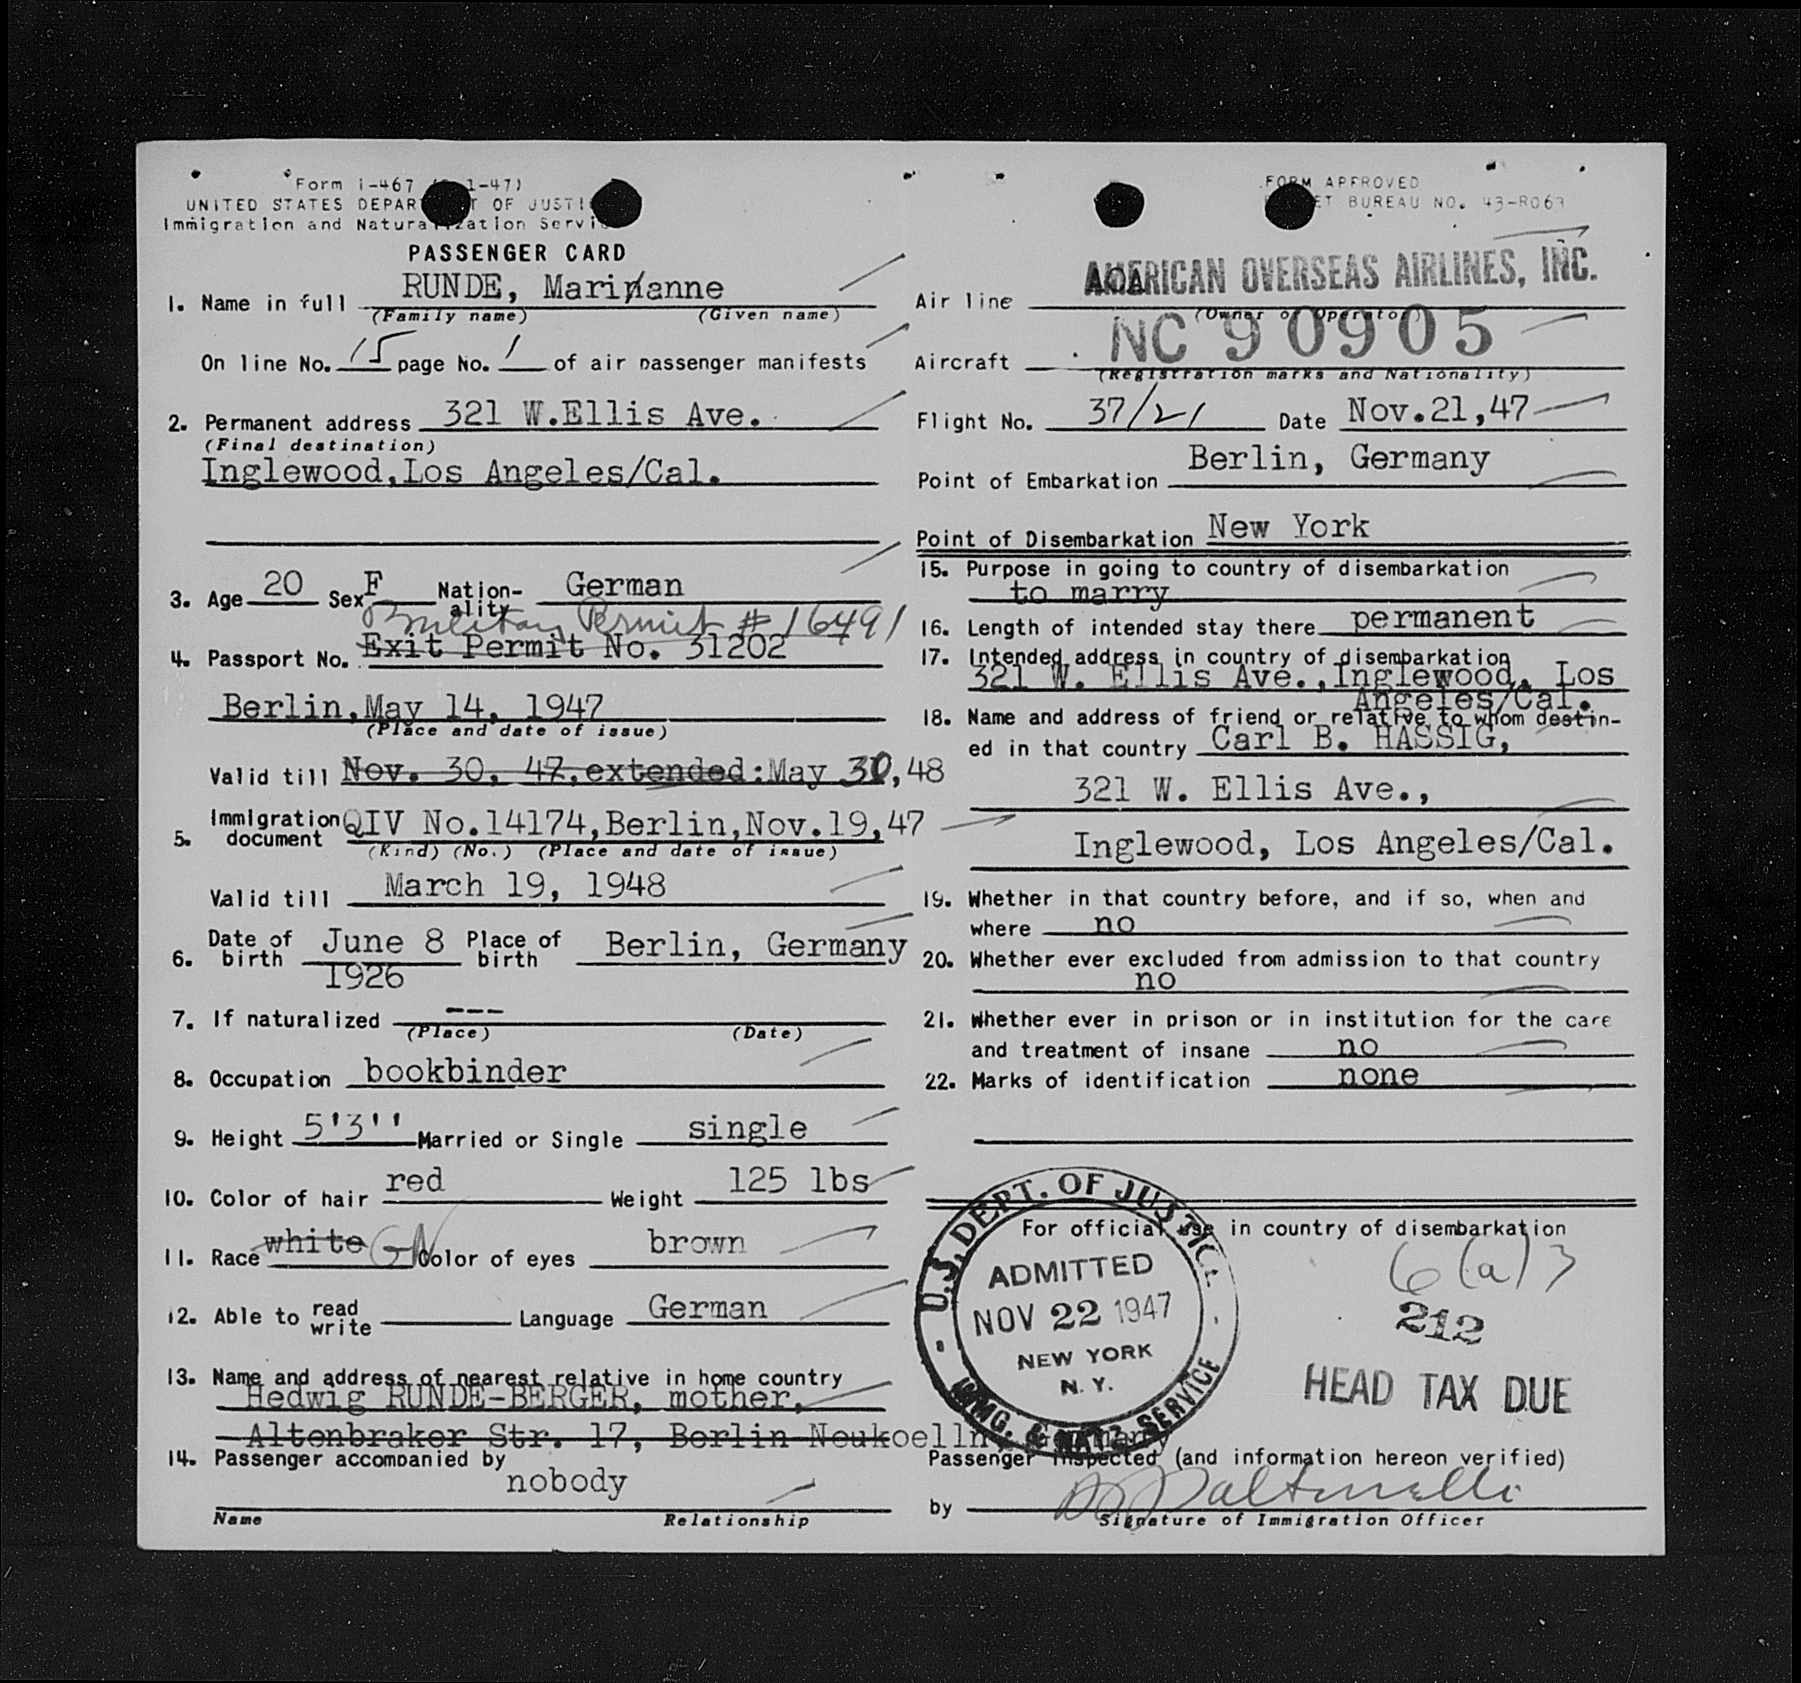 Form I-467 1-47)
UNITED STATES DEPAR T OF JUSTI
Immigration and Naturalization Servi
PASSENGER CARD
FORM APPROVED
ET BUREAU NO. 43-R063
1. Name in full RUNDE, Marianne
(Family name) (Given name)
On line No. 15 page No. 1 of air passenger manifests
2. Permanent address 321 W.Ellis Ave.
(Final destination)
Inglewood,Los Angeles/Cal.
3. Age 20 Sex F Nation-ality German
Military Permit # 16491
4. Passport No. Exit Permit No. 31202
Berlin,May 14, 1947
(Place and date of issue)
Valid till Nov. 30, 47,extended:May 30,48
5. Immigration document QIV No.14174,Berlin,Nov.19,47
(Kind) (No.) (Place and date of issue)
Valid till March 19, 1948
6. Date of birth June 8 1926 Place of birth Berlin, Germany
7. If naturalized ---
(Place) (Date)
8. Occupation bookbinder
9. Height 5'3'' Married or Single single
10. Color of hair red Weight 125 lbs
11. Race white GN Color of eyes brown
12. Able to read write Language German
13. Name and address of nearest relative in home country
Hedwig RUNDE-BERGER, mother,
Altenbraker Str. 17, Berlin Neukoelln, Germany
14. Passenger accompanied by
nobody
Name Relationship
Air line AOA AMERICAN OVERSEAS AIRLINES, INC.
(Owner or Operator)
Aircraft NC 90905
(Registration marks and Nationality)
Flight No. 37/21 Date Nov.21,47
Point of Embarkation Berlin, Germany
Point of Disembarkation New York
15. Purpose in going to country of disembarkation
to marry
16. Length of intended stay there permanent
17. Intended address in country of disembarkation
321 W. Ellis Ave.,Inglewood, Los
Angeles/Cal.
18. Name and address of friend or relative to whom destin-
ed in that country Carl B. HASSIG,
321 W. Ellis Ave.,
Inglewood, Los Angeles/Cal.
19. Whether in that country before, and if so, when and
where no
20. Whether ever excluded from admission to that country
no
21. Whether ever in prison or in institution for the care
and treatment of insane no
22. Marks of identification none
For official use in country of disembarkation
U.S. DEPT. OF JUSTICE
ADMITTED
NOV 22 1947
NEW YORK
N.Y.
IMMG. & NATZ. SERVICE
6(a)3
212
HEAD TAX DUE
Passenger inspected (and information hereon verified)
by
Signature of Immigration Officer